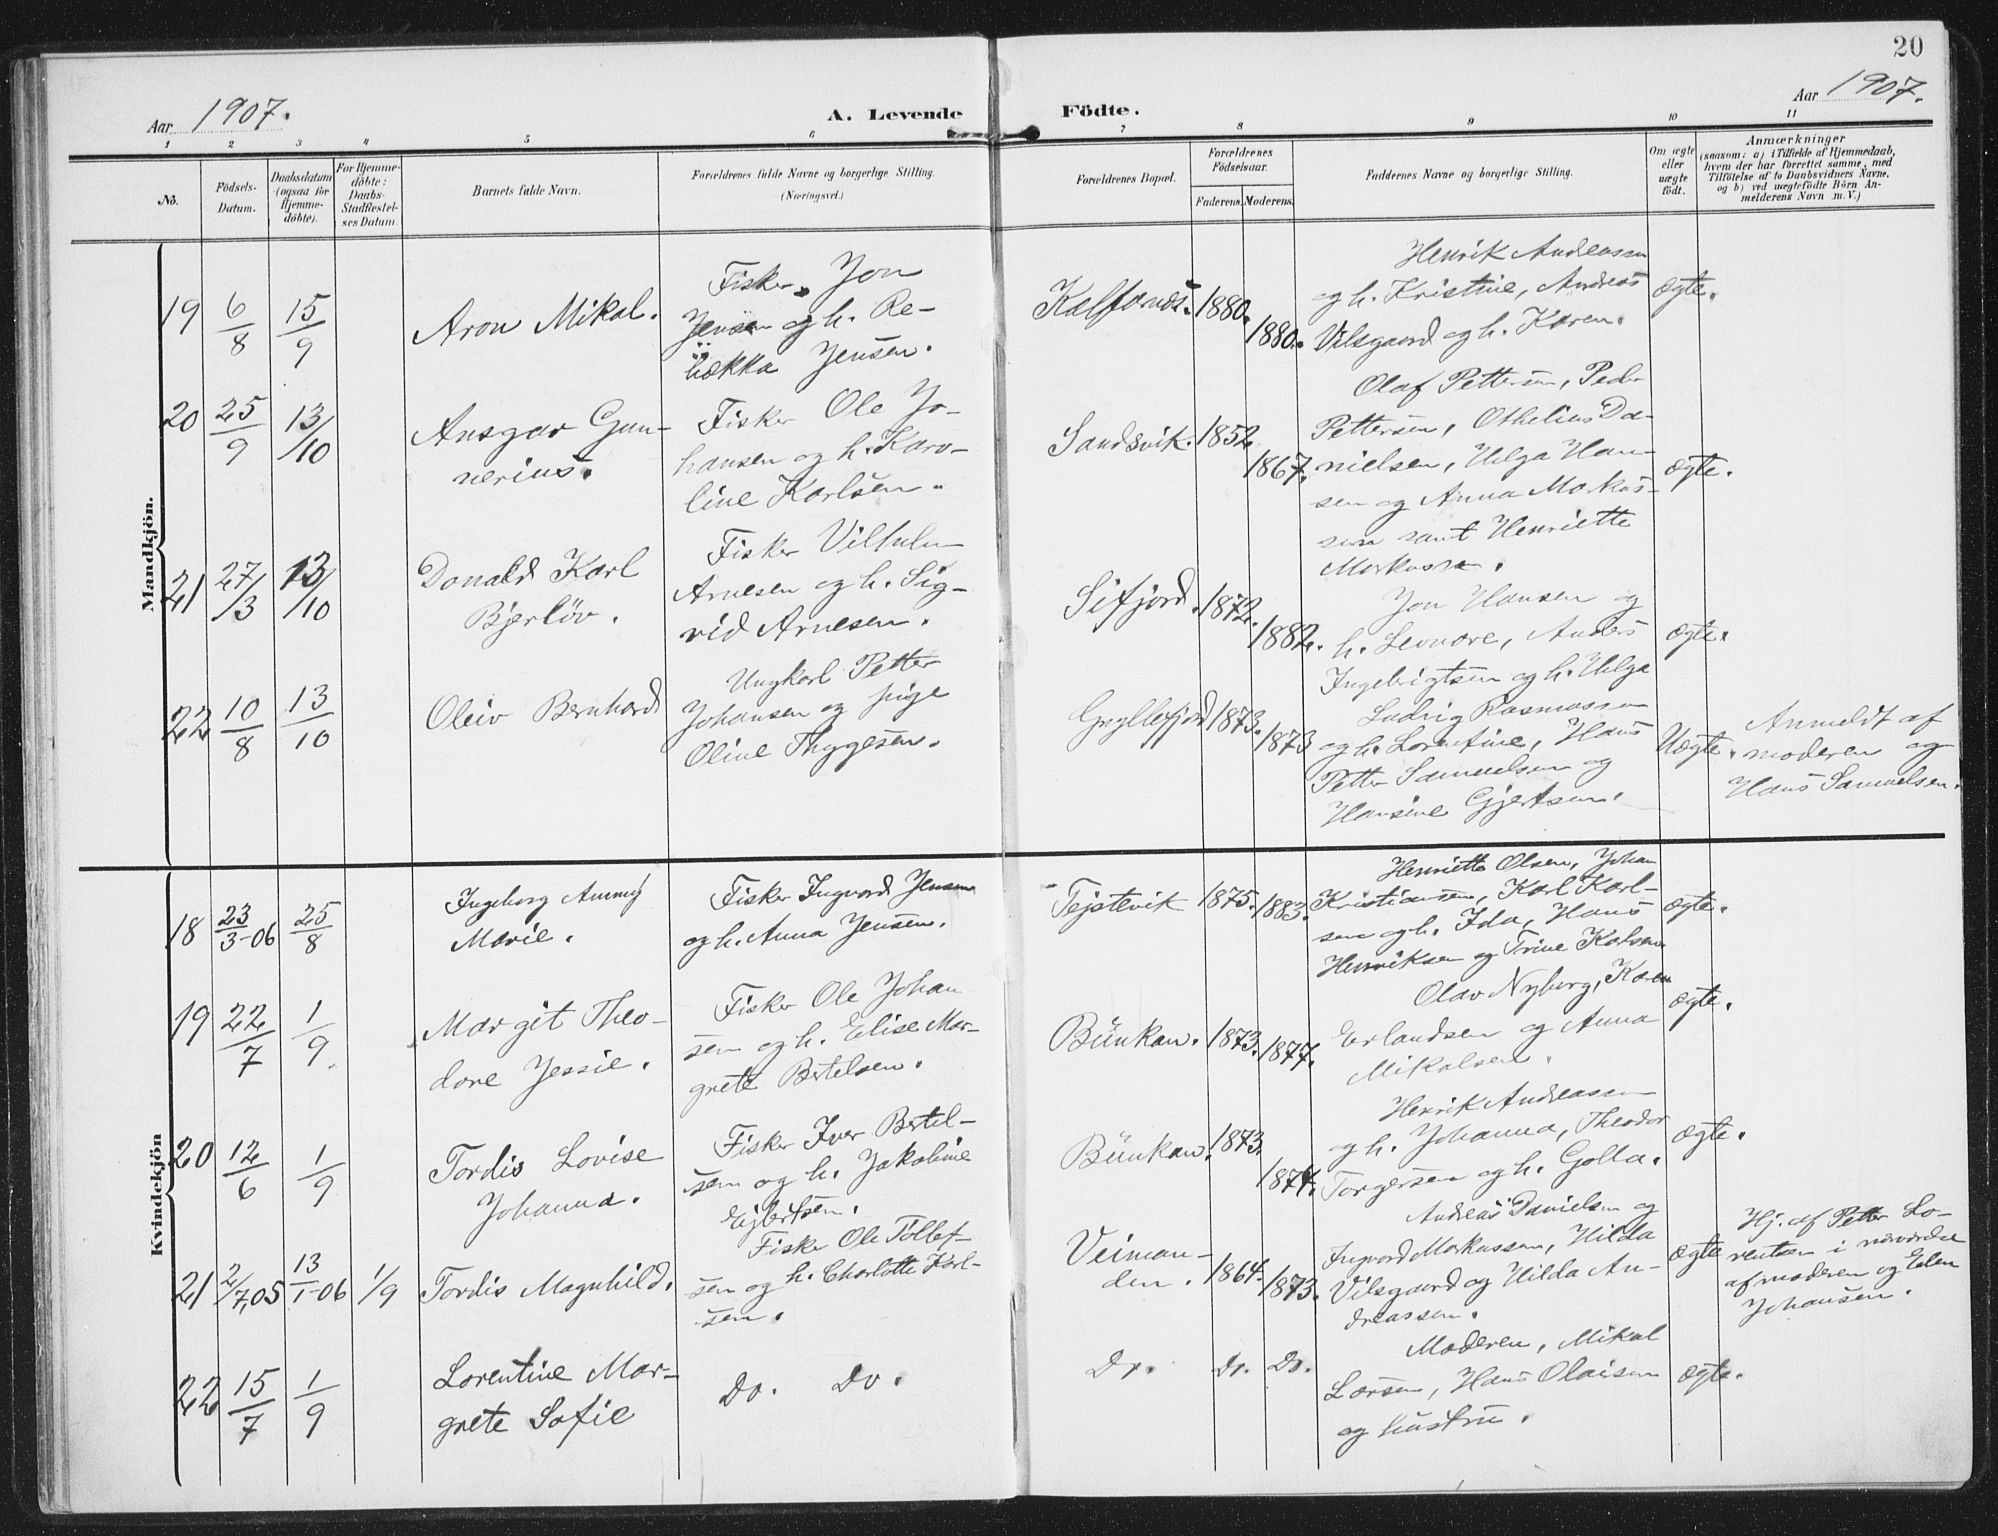 20
Aar 1907.
A. Levende Födte.
Aar 1907.
1 2 3 4 5 6 7 8 9 10 11
No.
Födsels-
Datum.
Daabsdatum
(ogsaa for
Hjemme-
döbte).
For Hjemme-
döbte:
Daabs-
Stadfæstel-
ses Datum.
Barnets fulde Navn.
Forældrenes fulde Navne og borgerlige Stilling.
(Næringsvei.)
Forældrenes Bopæl.
Forældrenes
Födselsaar.
Faderens. Moderens.
Faddernes Navne og borgerlige Stilling.
Om ægte
eller
uægte
födt.
Anmærkninger
(saasom: a) i Tilfælde af Hjemmedaab,
hvem der har forrettet samme, med
Tilföielse af to Daabsvidners Navne,
og b) ved uægtefödte Börn An-
melderens Navn m.V.)
Mandkjön.
19
6/8
15/9
Aron Mikal.
Fisker Jon
Jensen og h. Re-
bekka Jensen.
Kalfarnes.
1880.
1880.
Henrik Andreassen
og h. Kristine, Andreas
Vilsgaard og h. Karen.
ægte.
20
25/9
13/10
Ansgar Gun-
nerius.
Fisker Ole Jo-
hansen og h. Karo-
line Karlsen.
Sandsvik.
1852.
1867.
Olaf Pettersen, Peder
Pettersen, Othelius Da-
nielsen, Helga Han-
sen og Anna Markus-
sen samt Henriette
Markussen.
ægte.
21
27/3
13/10
Donald Karl
Bjerlöv.
Fisker Vilhelm
Arnesen og h. Sig-
rid Arnesen.
Sifjord.
1872.
1882.
Jon Hansen og
h. Leonore, Anders
Ingebrigtsen og h. Helga
ægte.
22
10/8
13/10
Oleiv Bernhard
Ungkarl Petter
Johansen og pige
Oline Thygesen.
Gryllefjord
1873.
1873
Ludvig Rasmussen
og h. Lorentine, Hans
Petter Samuelsen og
Hansine Gjertsen.
Uægte.
Anmeldt af
moderen og
Hans Samuelsen.
Kvindekjön
18
23/3-06
25/8
Ingeborg Ammy
Marie.
Fisker Ingvard Jensen
og h. Anna Jensen.
Tejstevik
1875.
1883.
Henriette Olsen, Johan
Kristiansen, Karl Karl-
sen og h. Ida, Hans
Henriksen og Trine Kalsen.
ægte.
19
22/7
1/9
Margit Theo-
dore Jessie.
Fisker Ole Johan
sen og h. Elise Mar-
grete Bertelsen.
Bünkan.
1873.
1877.
Olav Nyborg, Karen
Erlandsen og Anna
Mikalsen.
ægte.
20
12/6
1/9
Tordis Lovise
Johanna.
Fisker Iver Bertel-
sen og h. Jakobine
Ejbertsen.
Bünkan.
1873.
1874.
Henrik Andreassen
og h. Johanna, Theodor
Torgersen og h. Golla.
ægte.
21
2/7,05
13/1-06
1/9
Tordis Magnhild.
Fisker Ole Tollef-
sen og h. Charlotte Karl-
sen.
Veiman-
den.
1864.
1873.
Andreas Danielsen og
Ingvard Markussen, Hilda
Vilsgaard og Hilda An-
dreassen.
ægte
Hj. af Petter Lo-
rentsen i nærværelse
af moderen og Eden
Johansen.
22
15/7
1/9
Lorentine Mar-
grete Sofie
Do. Do.
Do.
Do.
Do.
Moderen, Mikal
Larsen, Hans Olaisen
og hustru.
ægte.